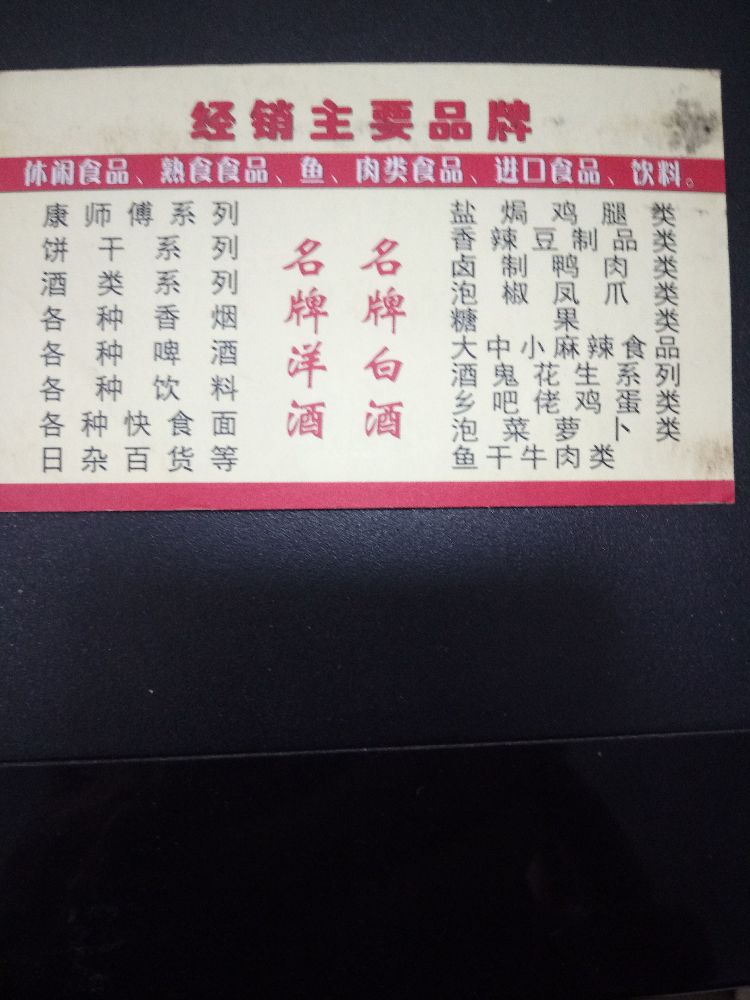 经销主要品牌
休闲食品、熟食食品、鱼、肉类食品、进口食品、饮料。
康师傅系列
饼干系列
酒类系列
各种香烟
各种啤酒
各种饮料
各种快食面
日杂百货等
名牌洋酒
名牌白酒
盐焗鸡腿类
香辣豆制品类
卤制鸭肉类
泡椒凤爪类
糖果类
大中小麻辣食品
酒鬼花生系列
乡吧佬鸡蛋类
泡菜萝卜类
鱼干牛肉类